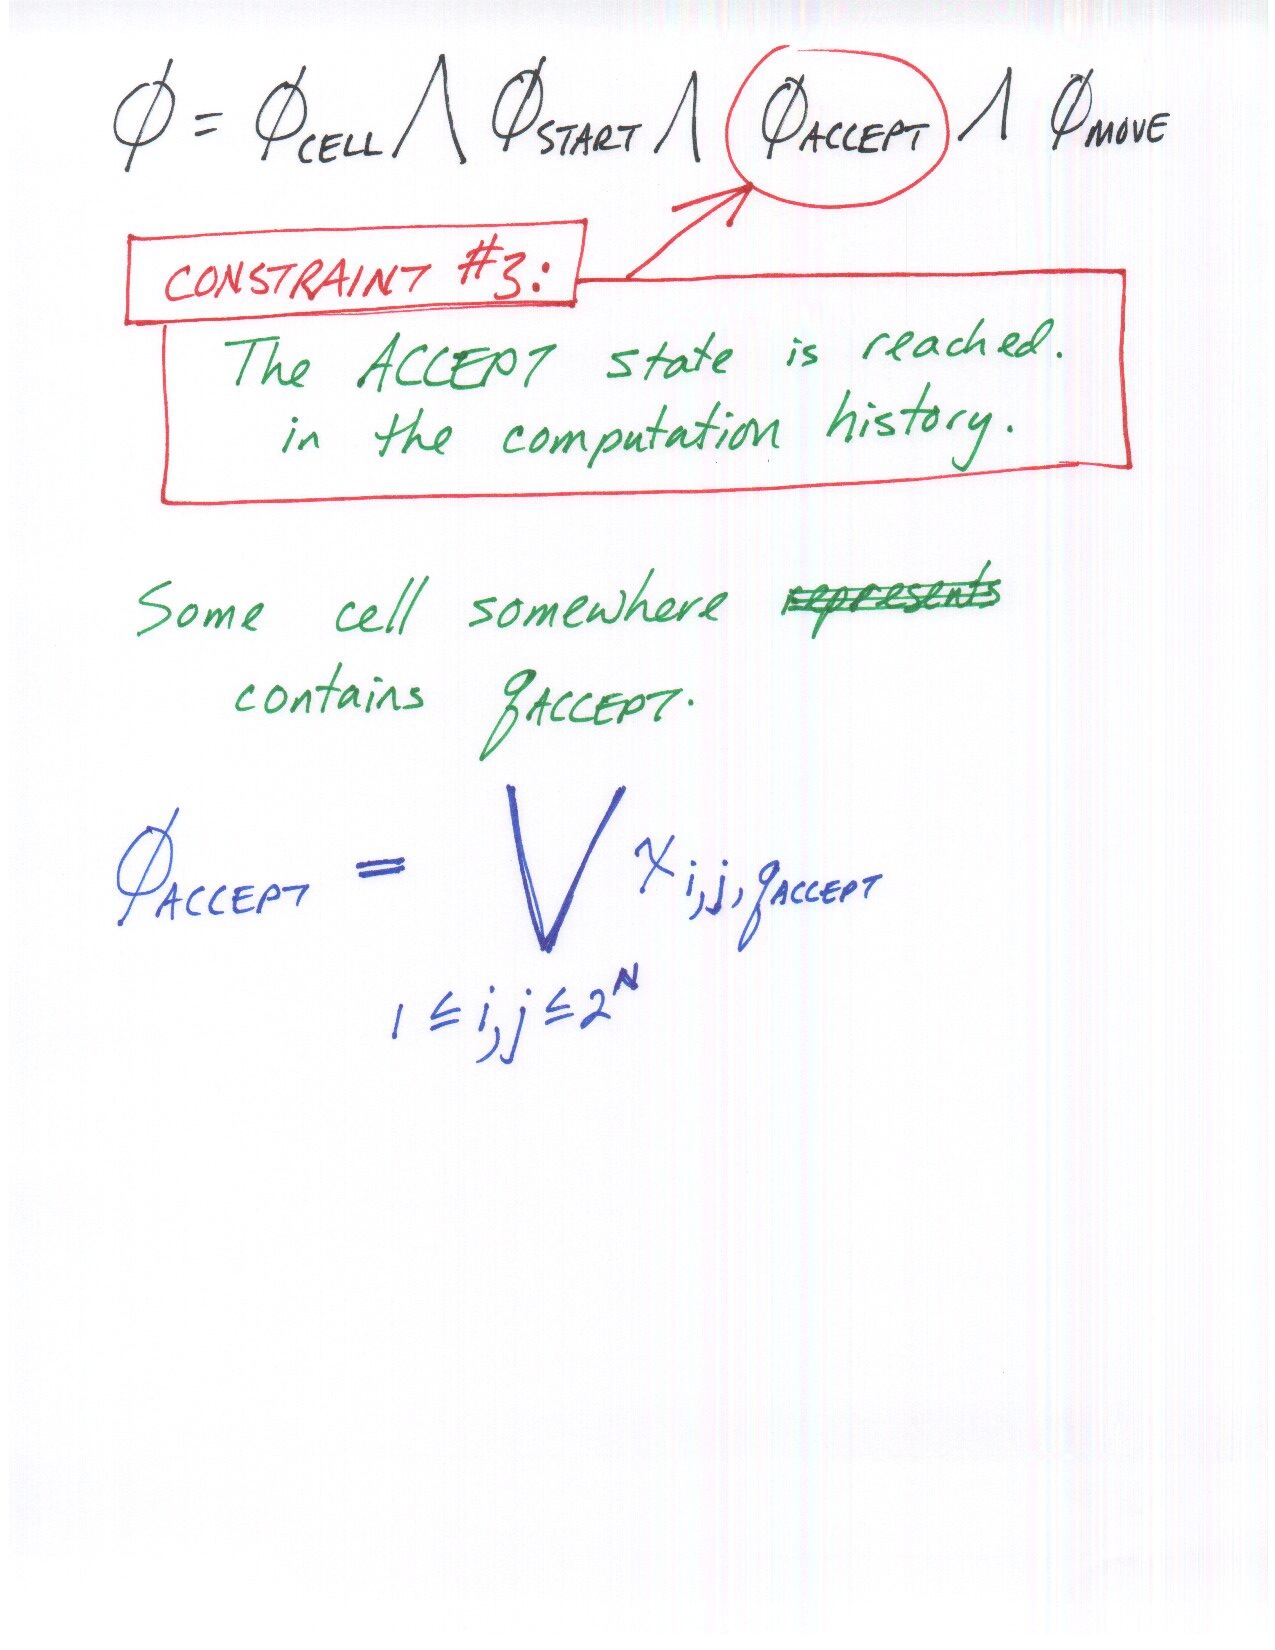 φ = φCELL ∧ φSTART ∧ φACCEPT ∧ φMOVE
CONSTRAINT #3:
The ACCEPT state is reached.
in the computation history.
Some cell somewhere represents
contains qACCEPT.
φACCEPT = ⋁ x i,j,qACCEPT
1 ≤ i,j ≤ 2^N